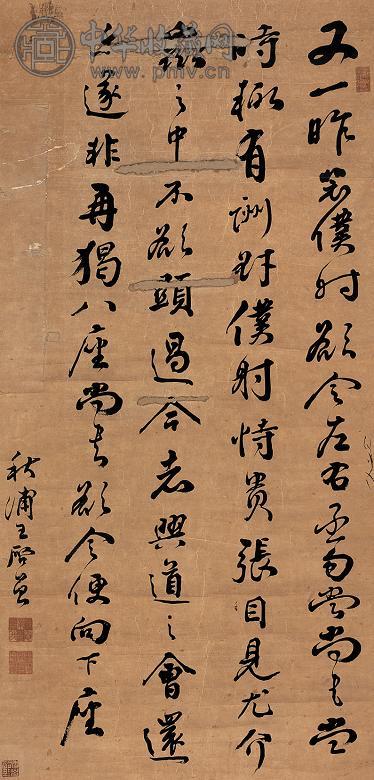 中华收藏网
www.pmv.cn
又一昨裴僕射欲令左右丞勾當尚書當
時輒有酬對僕射恃貴張目見尤介
衆之中不欲顯過今者興道之會還
爾遂非再猲八座尚書欲令便向下座
秋浦王啓